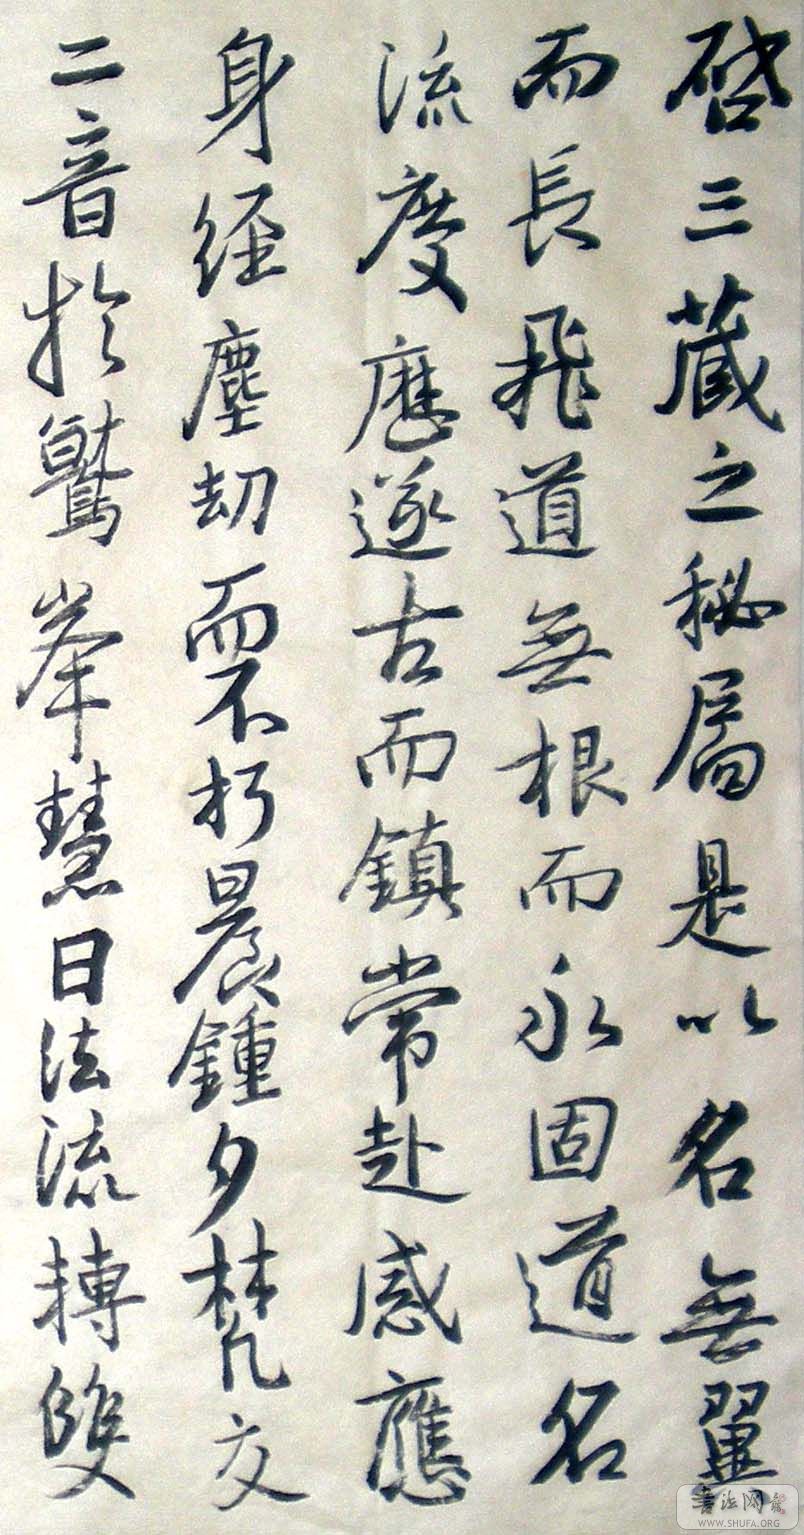 啓三藏之秘扃是以名無翼
而長飛道無根而永固道名
流慶歷遂古而鎮常赴感應
身經塵劫而不朽晨鍾夕梵交
二音於鷲峯慧日法流轉雙
書法网
WWW.SHUFA.ORG